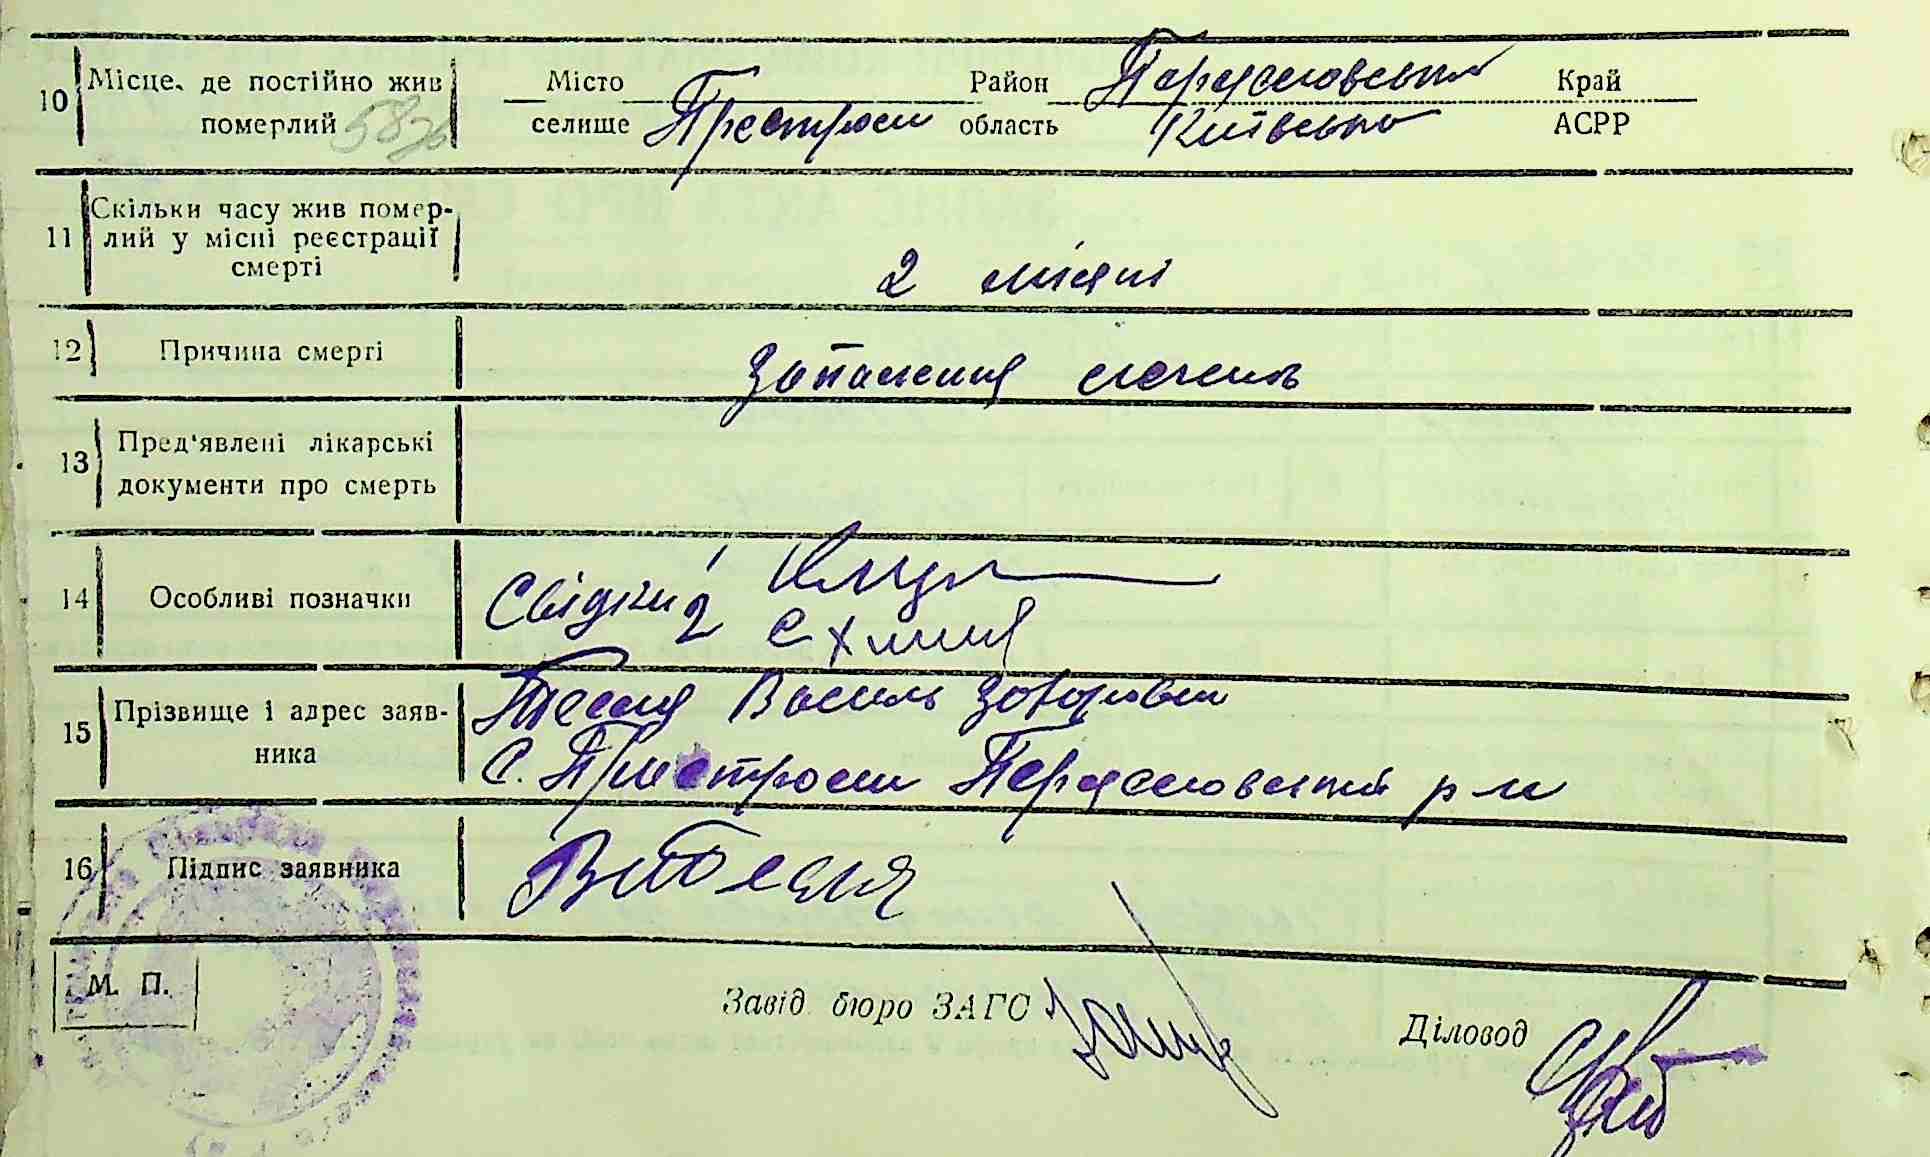 10 Місце, де постійно жив померлий 5826
Місто Район Переяславський Край
селище Пристроми область Київська АСРР
11 Скільки часу жив помер-
лий у місці реєстрації
смерті
2 місяці
12 Причина смерті Запалення легень
13 Пред'явлені лікарські
документи про смерть
14 Особливі позначки Свідки 1
2
15 Прізвище і адрес заяв-
ника
Василь
с. Пристроми Переяславський р-н
16 Підпис заявника
М. П.
Завід. бюро ЗАГС Діловод